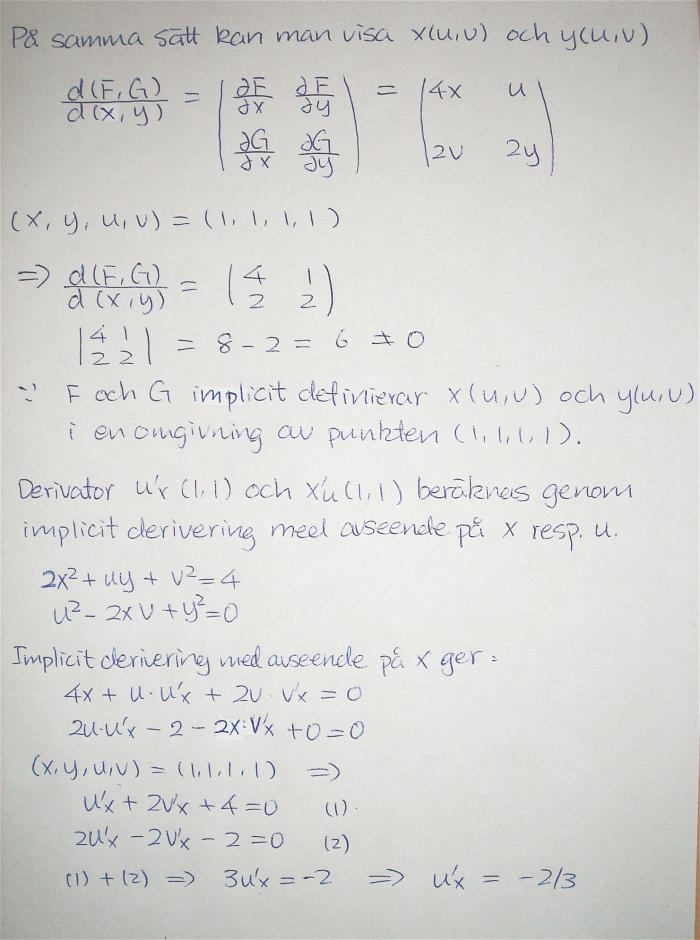 På samma sätt kan man visa x(u,v) och y(u,v)
d(F,G)/d(x,y) = |∂F/∂x ∂F/∂y| = |4x u|
|∂G/∂x ∂G/∂y| |2v 2y|
(x, y, u, v) = (1, 1, 1, 1)
=> d(F,G)/d(x,y) = |4 1|
|2 2|
|4 1| = 8 - 2 = 6 ≠ 0
|2 2|
∵ F och G implicit definierar x(u,v) och y(u,v)
i en omgivning av punkten (1,1,1,1).
Derivator u'x (1,1) och x'u (1,1) beräknas genom
implicit derivering med avseende på x resp. u.
2x² + uy + v² = 4
u² - 2xv + y² = 0
Implicit derivering med avseende på x ger:
4x + u·u'x + 2v·v'x = 0
2u·u'x - 2 - 2x·v'x + 0 = 0
(x,y,u,v) = (1,1,1,1) =>
u'x + 2v'x + 4 = 0 (1).
2u'x - 2v'x - 2 = 0 (2)
(1) + (2) => 3u'x = -2 => u'x = -2/3